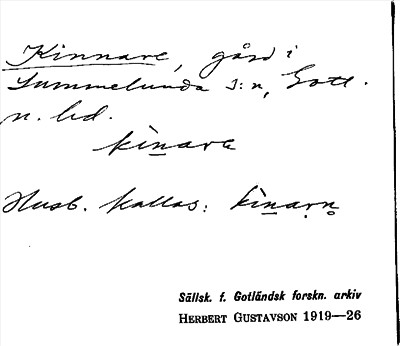 Kinnare, gård i
Lummelunda s:n, Gotl.
n. hd.
kìnara
Husb. kallas: kìnarn̥
Sällsk. f. Gotländsk forskn. arkiv
HERBERT GUSTAVSON 1919—26